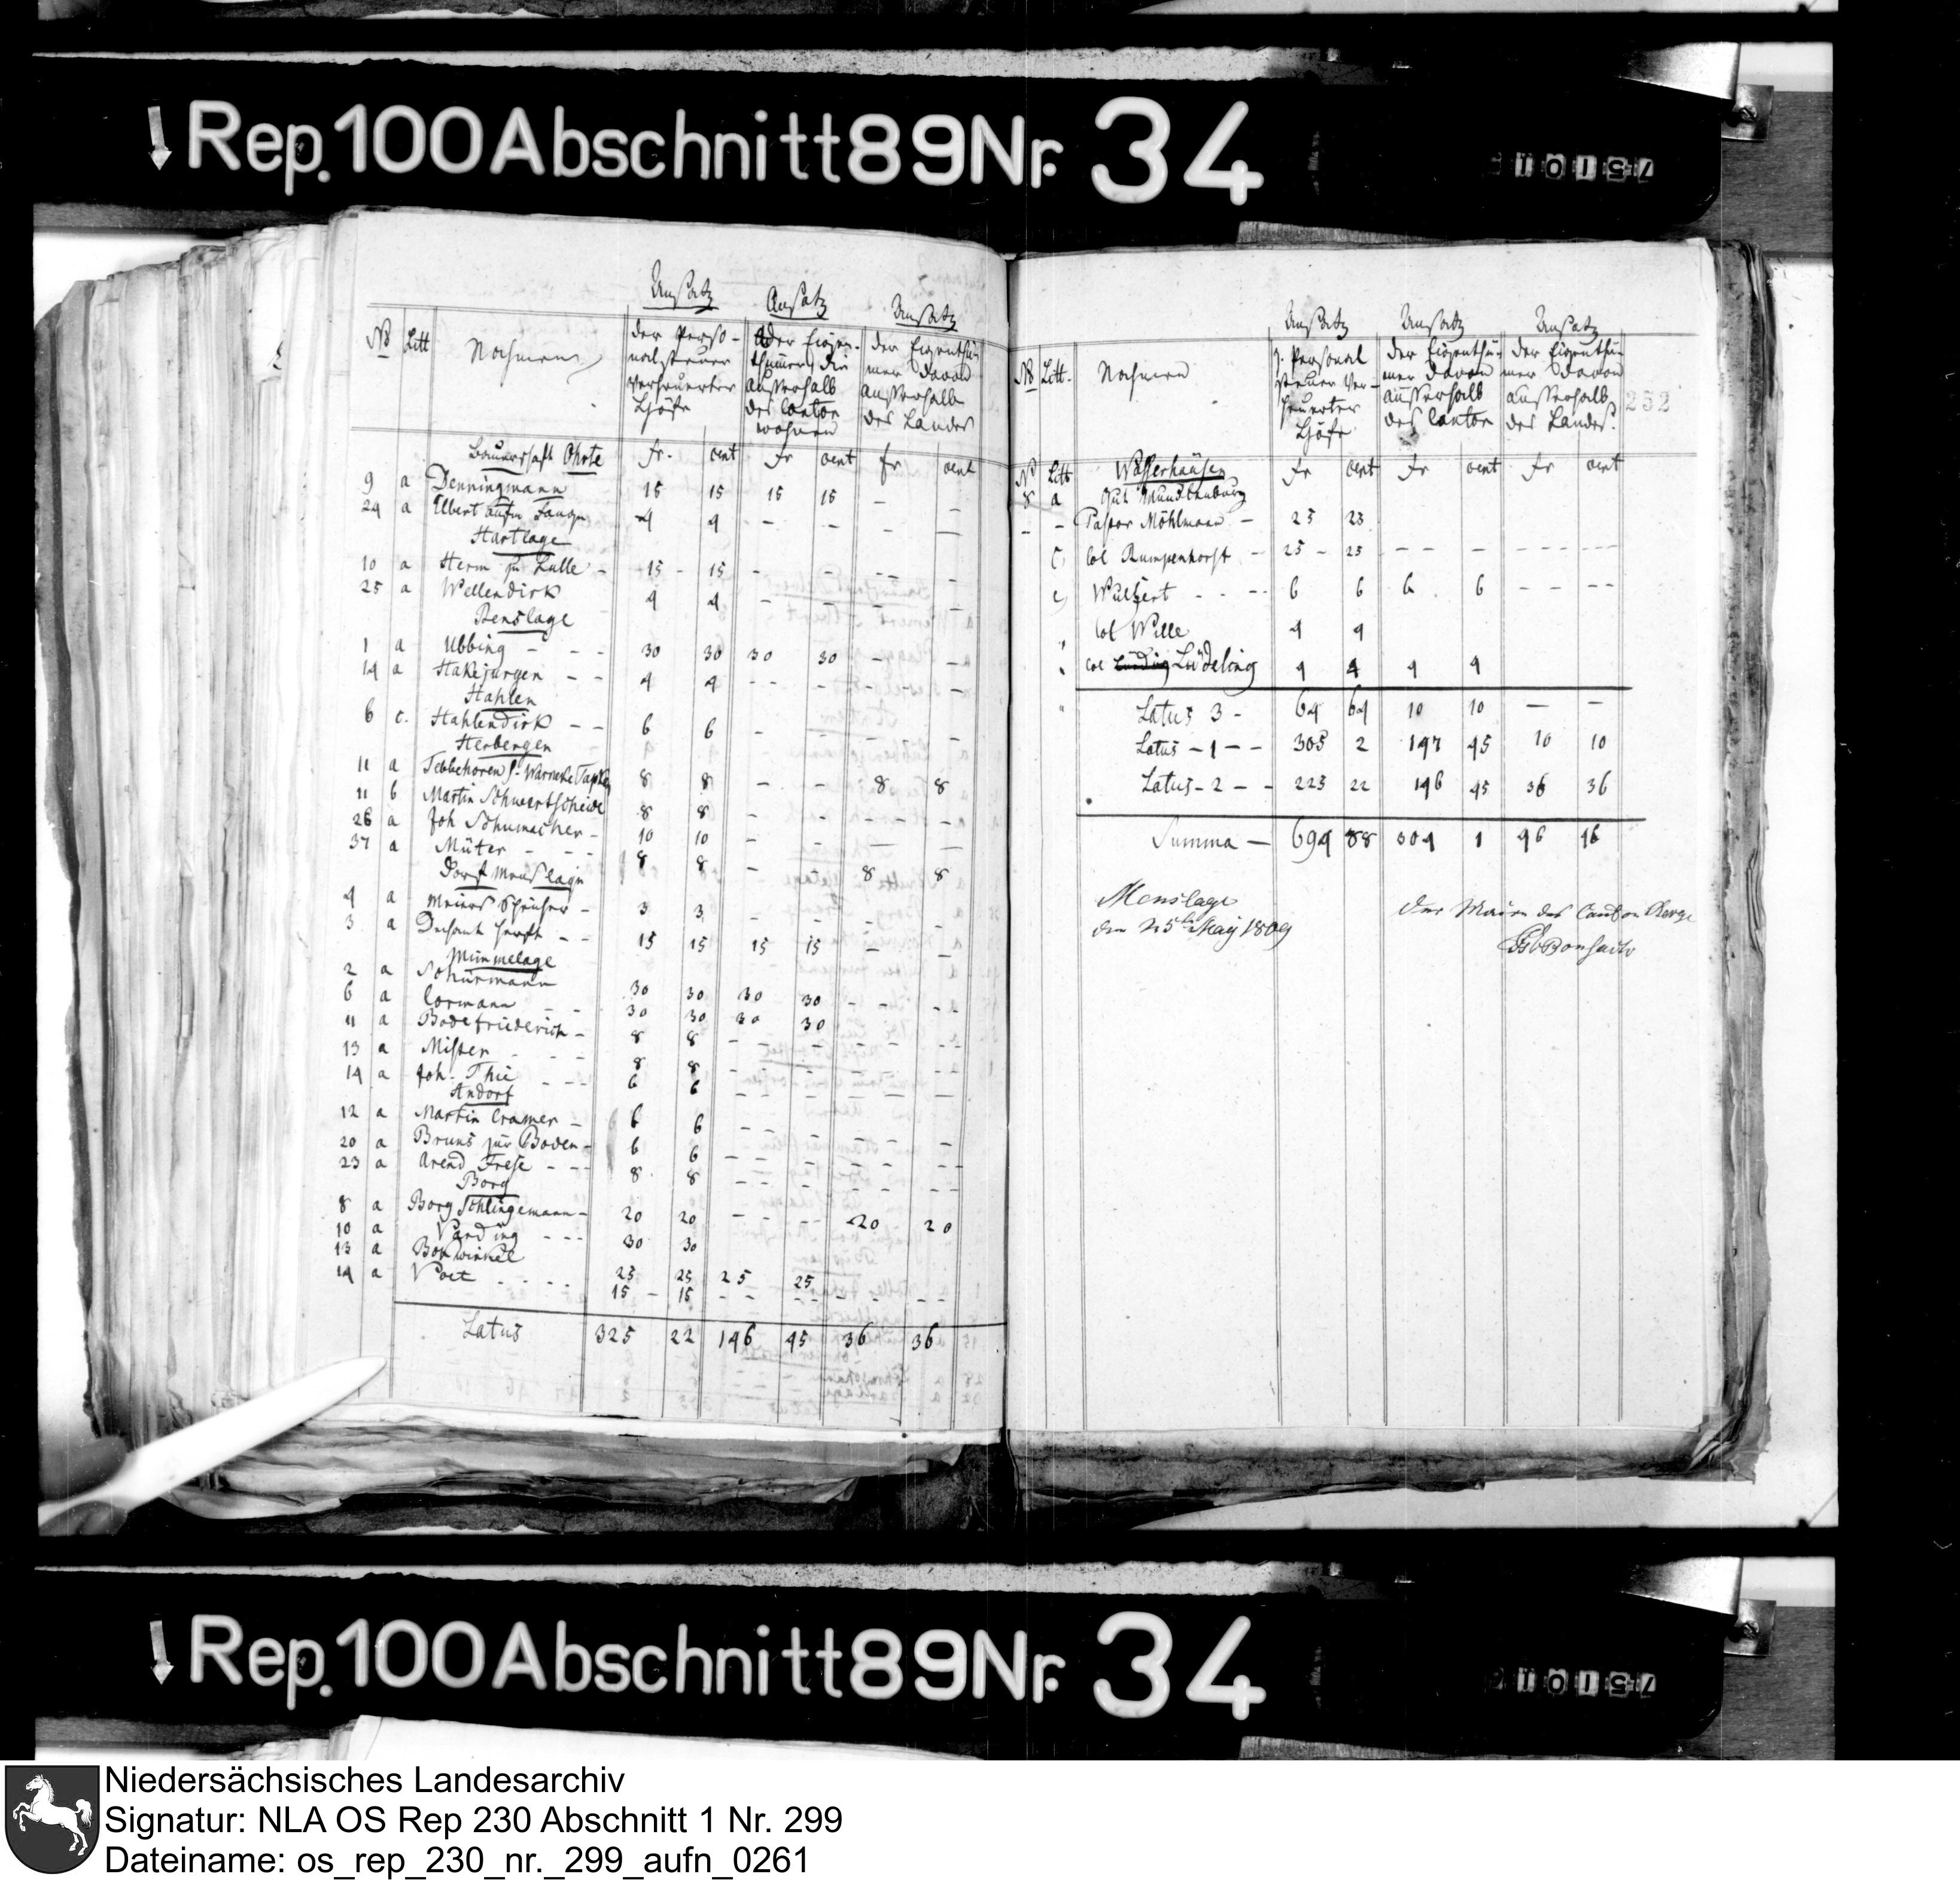 Rep.100Abschnitt89Nr. 34
Ansatz Ansatz Ansatz
N Litt Nahmen der Perso- der Eigen- der Eigenthü-
nal steuer thümer, die mer davon
verheuerter ausserhalb ausserhalb
Höfe des Canton des Landes
wohnen
Bauerschaft Ohrte fr. cent fr cent fr cent
9 a Denningmann 15 15 15 15 — —
24 a Elbert aufm Lange 4 4 - - - —
Hartlage
10 a Herm zu Lulle - 15 - 15 - - -- -
25 a Wellendirk 4 4 - - - -
Renslage
1 a Ubbing - - - 30 30 30 30 - -
14 a Hakejurgen - - 4 4 -- - - -
Hahlen
6 c. Hahlendirk - - 6 6 - - - -
Herbergen
11 a Tebbehoren s. Warneke Tapken 8 8 - - 8 8
11 b Martin Schwertscheide 8 8 - - - -
26 a Joh Schumacher - 10 10 - - — —
37 a Müter - - - 8 8 - 8 8
Dorf Menslage
4 a Meiers Speicher - 3 3 - - - -
3 a Dechant - - 15 15 15 15 - -
Mimmelage
2 a Schürmann 30 30 30 30 - - - -
6 a Cormann - - 30 30 30 30
11 a Bodefriederich - 8 8 - - - - -
13 a Misten - - - 8 8 - - - - -
14 a Joh. Thie - - - 6 6 - - - - - -
Andorf
12 a Martin Cramer - 6 6 - - - - -
20 a Bruns zur Boden - 6 6 - - - - - - -
23 a Arend Frese - - - 8 8 - - - - - - -
Borg
8 a Borg Schlingemann - 20 20 - - - - 20 20
10 a Varding - - - 30 30
13 a Bokwinkel 25 25 25 25
14 a Voet - - - - 15 - 15 - - - - - - -
Latus 325 22 146 45 36 36
Ansatz Ansatz Ansatz
N Litt. Nahmen d. Personal der Eigenthü- der Eigenthü-
steuer ver- mer davon mer davon
heuerter ausserhalb ausserhalb 252
Höfe des Canton des Landes.
N Litt Wasserhausen fr cent fr cent fr cent
8 a Gut Mundelnburg
- - Pastor Möhlmann - 25 25
c) Col Rumpenhorst - 25 - 25 - - - - - - - - -
e) Wulfert - - - - 6 6 6 . 6 - - - -
Col Wille 4 4
Col Lüdeling 4 4 4 4
Latus 3 - 64 64 10 10 — —
Latus - 1 - - 305 2 147 45 10 10
Latus - 2 - - 325 22 146 45 36 36
Summa — 694 88 304 1 46 46
Menslage
den 25t May 1809
Der Maire des Canton Berge
Rep.100Abschnitt89Nr. 34
Niedersächsisches Landesarchiv
Signatur: NLA OS Rep 230 Abschnitt 1 Nr. 299
Dateiname: os_rep_230_nr._299_aufn_0261